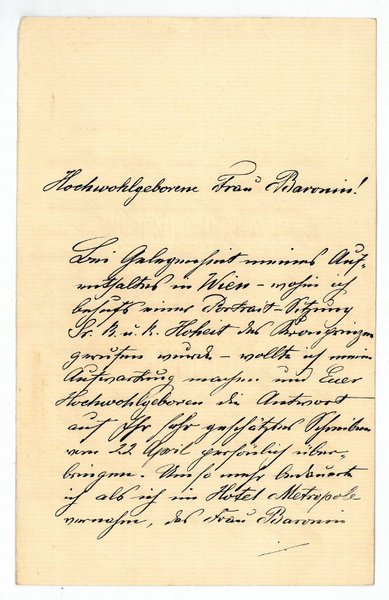 Hochwohlgeborene Frau Baronin!
Bei Gelegenheit meines Auf-
enthaltes in Wien – wohin ich
behufs einer Portrait-Sitzung
Sr. k. u. k. Hoheit des Kronprinzen
gerufen wurde – wollte ich meine
Aufwartung machen und Euer
Hochwohlgeboren die Antwort
auf Ihr sehr geschätztes Schreiben
vom 22 April persönlich über-
bringen. Umso mehr bedauerte
ich als ich im Hotel Metropole
vernahm, das Frau Baronin